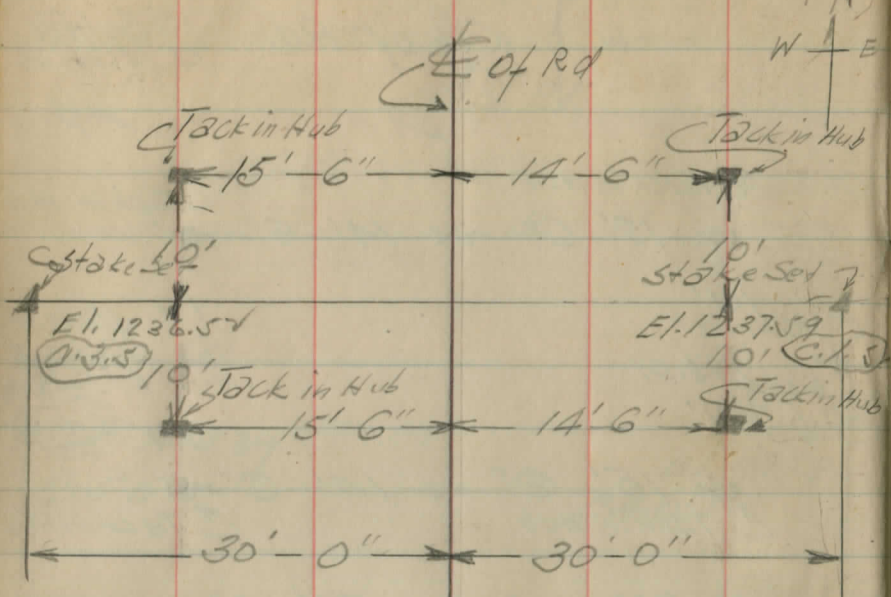 (N)
W E
℄ of Rd
Tack in Hub Tack in Hub
15'-6" 14'-6"
10' 10'
Stake Set Stake Set
El. 1236.5 El. 1237.59
C.1.5
10' 10'
Tack in Hub Tack in Hub
15'-6" 14'-6"
30'-0" 30'-0"